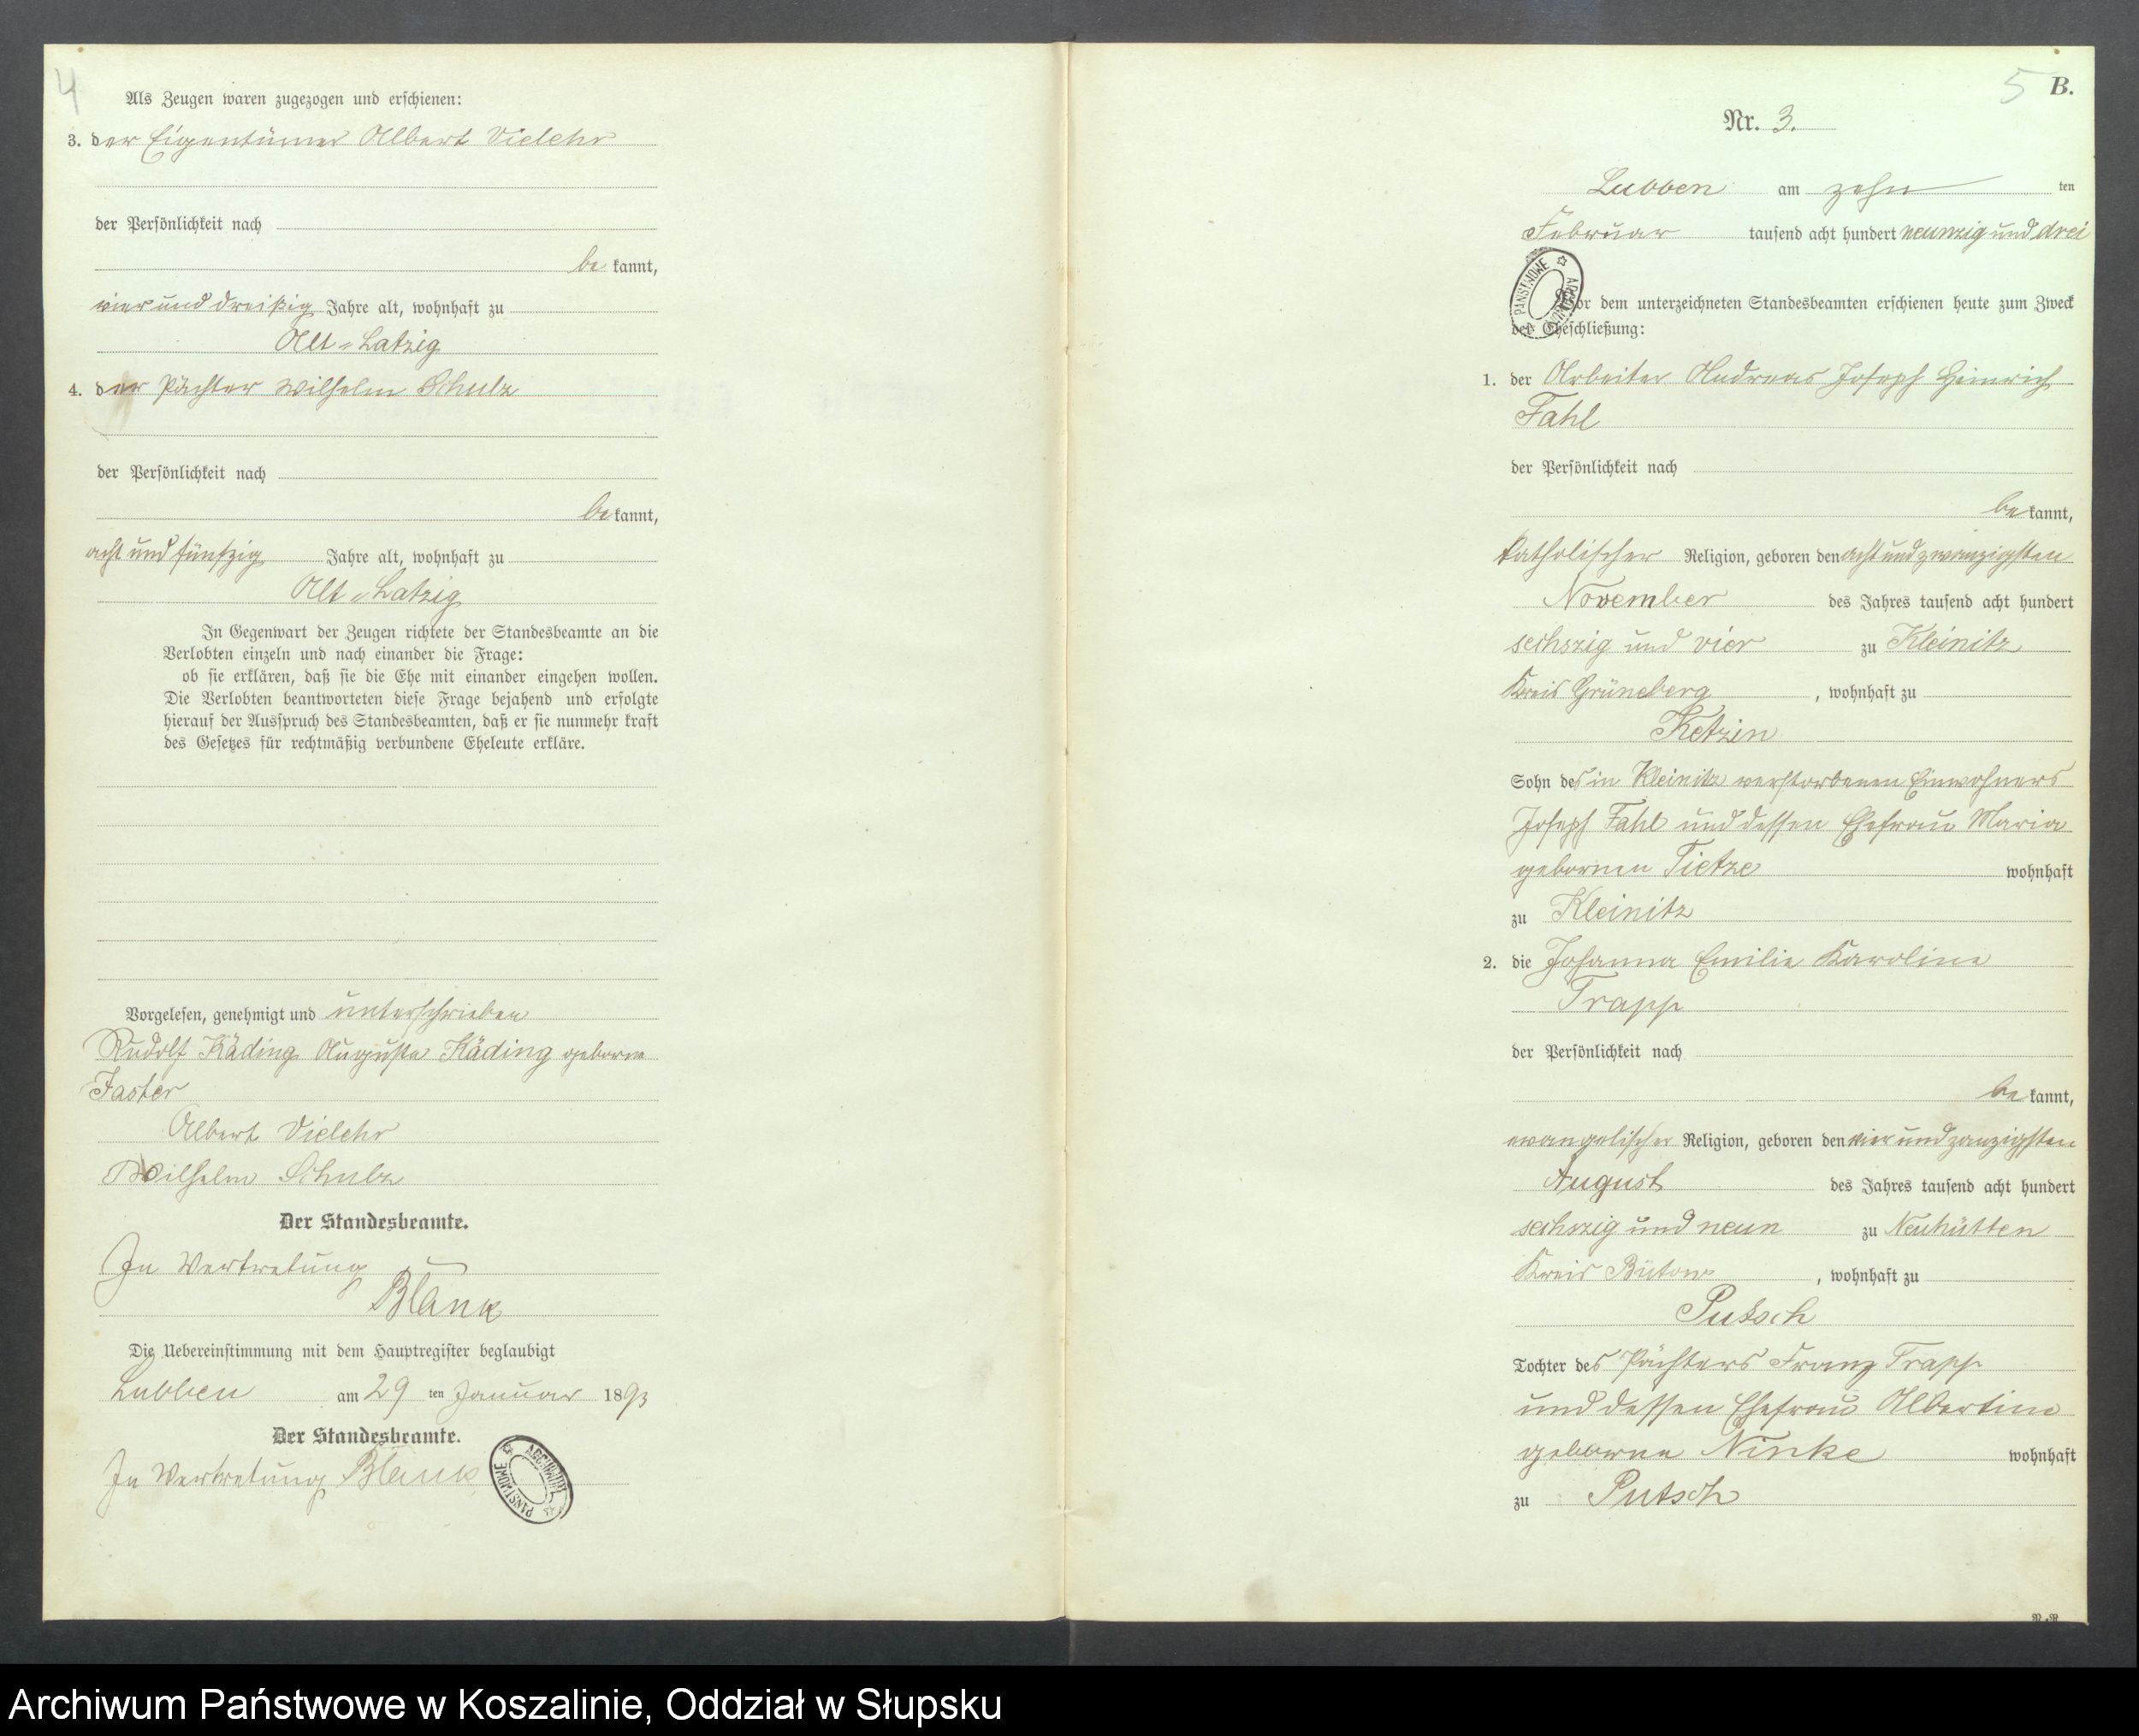 4
Als Zeugen waren zugezogen und erschienen:
3. der Eigentümer Albert Vielehr
der Persönlichkeit nach
be kannt,
vier und dreißig Jahre alt, wohnhaft zu
Alt-Latzig
4. der Pächter Wilhelm Schulz
der Persönlichkeit nach
be kannt,
acht und fünfzig Jahre alt, wohnhaft zu
Alt-Latzig
In Gegenwart der Zeugen richtete der Standesbeamte an die
Verlobten einzeln und nach einander die Frage:
ob sie erklären, daß sie die Ehe mit einander eingehen wollen.
Die Verlobten beantworteten diese Frage bejahend und erfolgte
hierauf der Ausspruch des Standesbeamten, daß er sie nunmehr kraft
des Gesetzes für rechtmäßig verbundene Eheleute erkläre.
Vorgelesen, genehmigt und unterschrieben
Rudolf Käding Auguste Käding geborne
Faster
Albert Vielehr
Wilhelm Schulz
Der Standesbeamte.
In Vertretung
Blank
Die Uebereinstimmung mit dem Hauptregister beglaubigt
Lubben am 29 ten Januar 1893
Der Standesbeamte.
In Vertretung Blank
ARCHIWUM PAŃSTWOWE
5 B.
Nr. 3.
Lubben am zehn ten
Februar tausend acht hundert neunzig und drei
ARCHIWUM PAŃSTWOWE
Vor dem unterzeichneten Standesbeamten erschienen heute zum Zweck
der Eheschließung:
1. der Arbeiter Andreas Joseph Heinrich
Fahl
der Persönlichkeit nach
be kannt,
katholischer Religion, geboren den acht und zwanzigsten
November des Jahres tausend acht hundert
sechszig und vier zu Kleinitz
Kreis Grüneberg, wohnhaft zu
Ketzin
Sohn des in Kleinitz verstorbenen Einwohners
Joseph Fahl und dessen Ehefrau Maria
gebornen Tietze wohnhaft
zu Kleinitz
2. die Johanna Emilie Karoline
Trapp
der Persönlichkeit nach
be kannt,
evangelischer Religion, geboren den vier und zwanzigsten
August des Jahres tausend acht hundert
sechszig und neun zu Neuhütten
Kreis Bütow, wohnhaft zu
Putsch
Tochter des Pächters Franz Trapp
und dessen Ehefrau Albertine
geborne Ninke wohnhaft
zu Putsch
Archiwum Państwowe w Koszalinie, Oddział w Słupsku